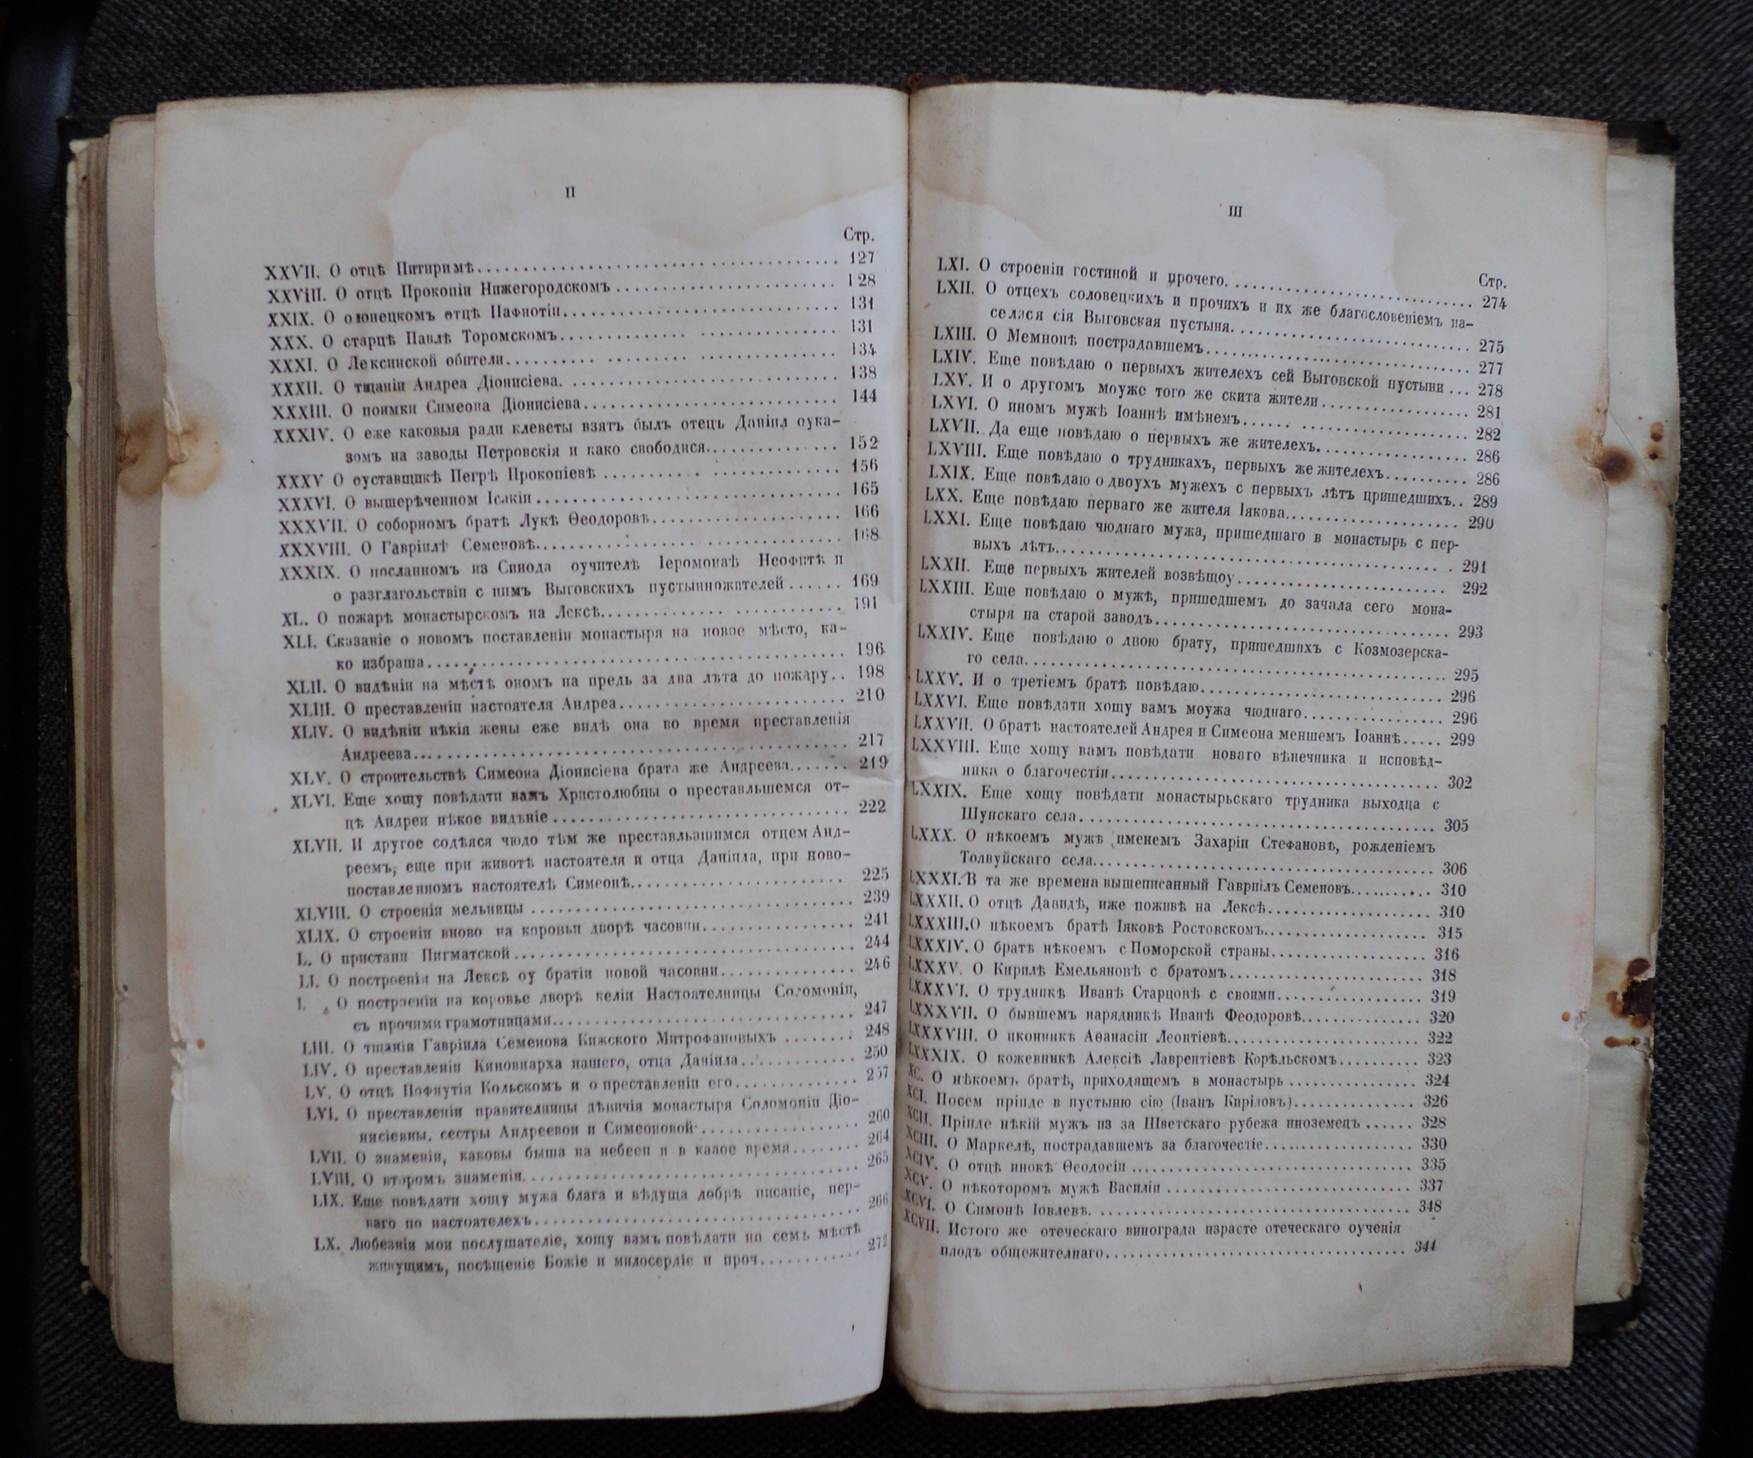 II
Стр.
XXVII. О отцѣ Питиримѣ 127
XXVIII. О отцѣ Прокопіи Нижегородскомъ 128
XXIX. О олонецкомъ отцѣ Пафнотіи 131
XXX. О старцѣ Павлѣ Торомскомъ 131
XXXI. О Лексинской обители 134
XXXII. О тщаніи Андреа Діонисіева. 138
XXXIII. О поимки Симеона Діонисіева 144
XXXIV. О еже каковыя ради клеветы взятъ былъ отецъ Даніил оука-
зомъ на заводы Петровскія и како свободися 152
XXXV О оуставщикѣ Петрѣ Прокопіевѣ 156
XXXVI. О вышереченном Ісакіи 165
XXXVII. О соборномъ братѣ Лукѣ Ѳеодоровѣ 166
XXXVIII. О Гавріилѣ Семеновѣ 168
XXXIX. О посланномъ из Синода оучителѣ Іеромонаѣ Неофитѣ и
о разглагольствіи с нимъ Выговскихъ пустынножителей 169
XL. О пожарѣ монастырскомъ на Лексѣ 191
XLI. Сказаніе о новомъ поставленіи монастыря на новое мѣсто, ка-
ко избраша 196
XLII. О видѣніи на мѣстѣ оном на предь за два лѣта до пожару 198
XLIII. О преставленіи настоятеля Андреа 210
XLIV. О видѣніи нѣкія жены еже видѣ она во время преставленія
Андреева 217
XLV. О строительствѣ Симеона Діонисіева брата же Андреева 219
XLVI. Еще хощу повѣдати вамъ Христолюбцы о преставльшемся от-
цѣ Андреи нѣкое видѣніе 222
XLVII. И другое содѣяся чюдо тѣм же преставльшимся отцем Анд-
реемъ, еще при животѣ настоятеля и отца Даніила, при ново-
поставленномъ настоятелѣ Симеонѣ 225
XLVIII. О строеніи мельницы 239
XLIX. О строеніи вново на коровьи дворѣ часовни 241
L. О пристани Пигматской 244
LI. О построенія на Лексѣ оу братіи новой часовни 246
О построеніи на коровье дворѣ келіи Настоятелницы Соломоніи,
съ прочими грамотницами 247
LIII. О тщаніи Гавріила Семенова Кижского Митрофановыхъ 248
LIV. О преставленіи Киновиарха нашего, отца Даніила 250
LV. О отцѣ Пофнутіи Кольскомъ и о преставленіи его 257
LVI. О преставленіи правителницы дѣвичія монастыря Соломоніи Діо-
нисіевны, сестры Андреевой и Симеоновой 260
LVII. О знаменіи, каковы быша на небеси и в какое время 264
LVIII. О второмъ знаменіи 265
LIX. Еще повѣдати хощу мужа блага и вѣдуща добрѣ писаніе, пер-
ваго по настоятелехъ 266
LX. Любезніи мои послушателіе, хощу вамъ повѣдати на семъ мѣстѣ
живущимъ, посѣщеніе Божіе и милосердіе и проч 272
III
Стр.
LXI. О строеніи гостиной и прочего 274
LXII. О отцехъ соловецкихъ и прочихъ и их же благословеніемъ на-
селяся сія Выговская пустыня 275
LXIII. О Мемнонѣ пострадавшемъ 277
LXIV. Еще повѣдаю о первыхъ жителехъ сей Выговской пустыни 278
LXV. И о другомъ моуже того же скита жители 281
LXVI. О иномъ мужѣ Іоаннѣ имѣнемъ 282
LXVII. Да еще повѣдаю о первыхъ же жителехъ 286
LXVIII. Еще повѣдаю о трудникахъ, первыхъ же жителехъ 286
LXIX. Еще повѣдаю о двоухъ мужехъ с первыхъ лѣтъ пришедшихъ 289
LXX. Еще повѣдаю перваго же жителя Іякова 290
LXXI. Еще повѣдаю чюднаго мужа, пришедшаго в монастырь с пер-
выхъ лѣтъ 291
LXXII. Еще первыхъ жителей возвѣщоу 292
LXXIII. Еще повѣдаю о мужѣ, пришедшемъ до зачала сего мона-
стыря на старой заводъ 293
LXXIV. Еще повѣдаю о двою брату, пришедшихъ с Козмозерска-
го села 295
LXXV. И о третіемъ братѣ повѣдаю 296
LXXVI. Еще повѣдати хощу вамъ моужа чюднаго 296
LXXVII. О братѣ настоятелей Андрея и Симеона меншемъ Іоаннѣ 299
LXXVIII. Еще хощу вамъ повѣдати новаго вѣнечника и исповѣд-
ника о благочестіи 302
LXXIX. Еще хощу повѣдати монастырьскаго трудника выходца с
Шунскаго села 305
LXXX. О нѣкоемъ мужѣ именемъ Захаріи Стефановѣ, рожденіемъ
Толвуйскаго села 306
LXXXI. В та же времена вышеписанный Гавріилъ Семеновъ 310
LXXXII. О отцѣ Давидѣ, иже поживѣ на Лексѣ 310
LXXXIII. О нѣкоемъ братѣ Іяковѣ Ростовскомъ 315
LXXXIV. О братѣ нѣкоемъ с Поморской страны 316
LXXXV. О Кирилѣ Емельяновѣ с братомъ 318
LXXXVI. О трудникѣ Иванѣ Старцовѣ с своими 319
LXXXVII. О бывшемъ нарядникѣ Иванѣ Феодоровѣ 320
LXXXVIII. О иконникѣ Аѳанасіи Леонтіевѣ 322
LXXXIX. О кожевникѣ Алексіѣ Лаврентіевѣ Корѣльскомъ 323
XC. О нѣкоемъ братѣ, приходящемъ в монастырь 324
XCI. Посем пріиде в пустыню сію (Іван Кириловъ) 326
XCII. Пріиде нѣкій мужъ из за Шветскаго рубежа иноземецъ 328
XCIII. О Маркелѣ, пострадавшемъ за благочестіе 330
XCIV. О отцѣ инокѣ Ѳеодосіи 335
XCV. О нѣкоторомъ мужѣ Василіи 337
XCVI. О Симонѣ Іовлевѣ 348
XCVII. Истого же отеческаго винограда израсте отеческаго оученія
плодъ общежителнаго 344